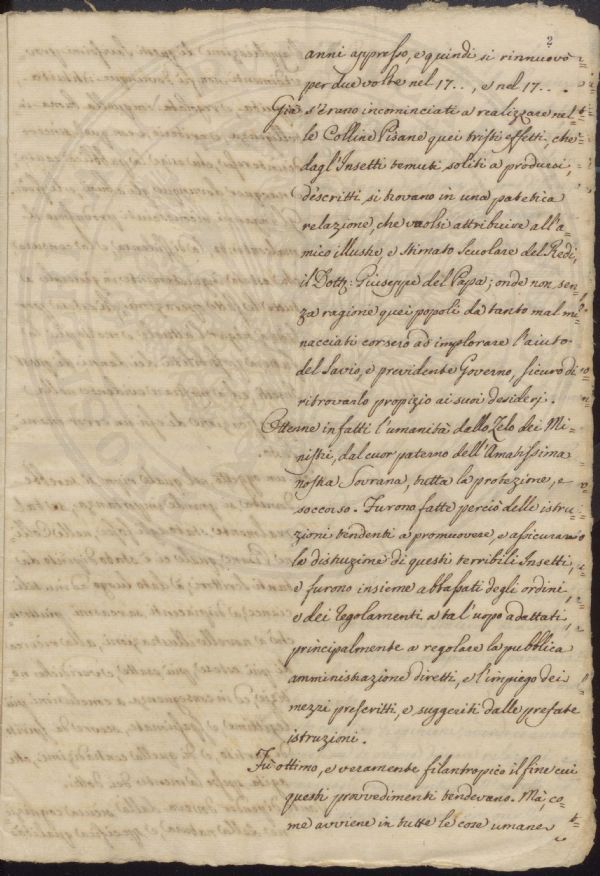 2
anni appresso, e quindi si rinnuovò
per due volte nel 17.., e nel 17...
Già s'erano incominciati a realizzare nel=
le Colline Pisane quei tristi effetti, che
dagl'Insetti temuti soliti a prodursi,
descritti si trovano in una patetica
relazione, che vuolsi attribuire all'a=
mico illustre, e stimato Scuolare del Redi,
il Dott.: Giuseppe del Papa; onde non sen=
za ragione quei popoli da tanto mal mi=
nacciati corsero ad implorare l'aiuto
del Savio, e previdente Governo, sicuro di
ritrovarlo propizio ai suoi desiderj.
Ottenne infatti l'umanità dallo Zelo dei Mi=
nistri, dal cuor paterno dell'Amatissima
nostra Sovrana, tutta la protezione, e
soccorso. Furono fatte perciò delle istru=
zioni tendenti a promuovere, e assicurare
la distruzione di questi terribili Insetti,
e furono insieme abbassati degli ordini,
e dei regolamenti a tal'uopo adattati,
principalmente a regolare la pubblica
amministrazione diretti, e l'impiego dei
mezzi prescritti, e suggeriti dalle prefate
istruzioni.
Fù ottimo, e veramente filantropico il fine cui
questi provvedimenti tendevano. Mà, co=
me avviene in tutte le cose umane